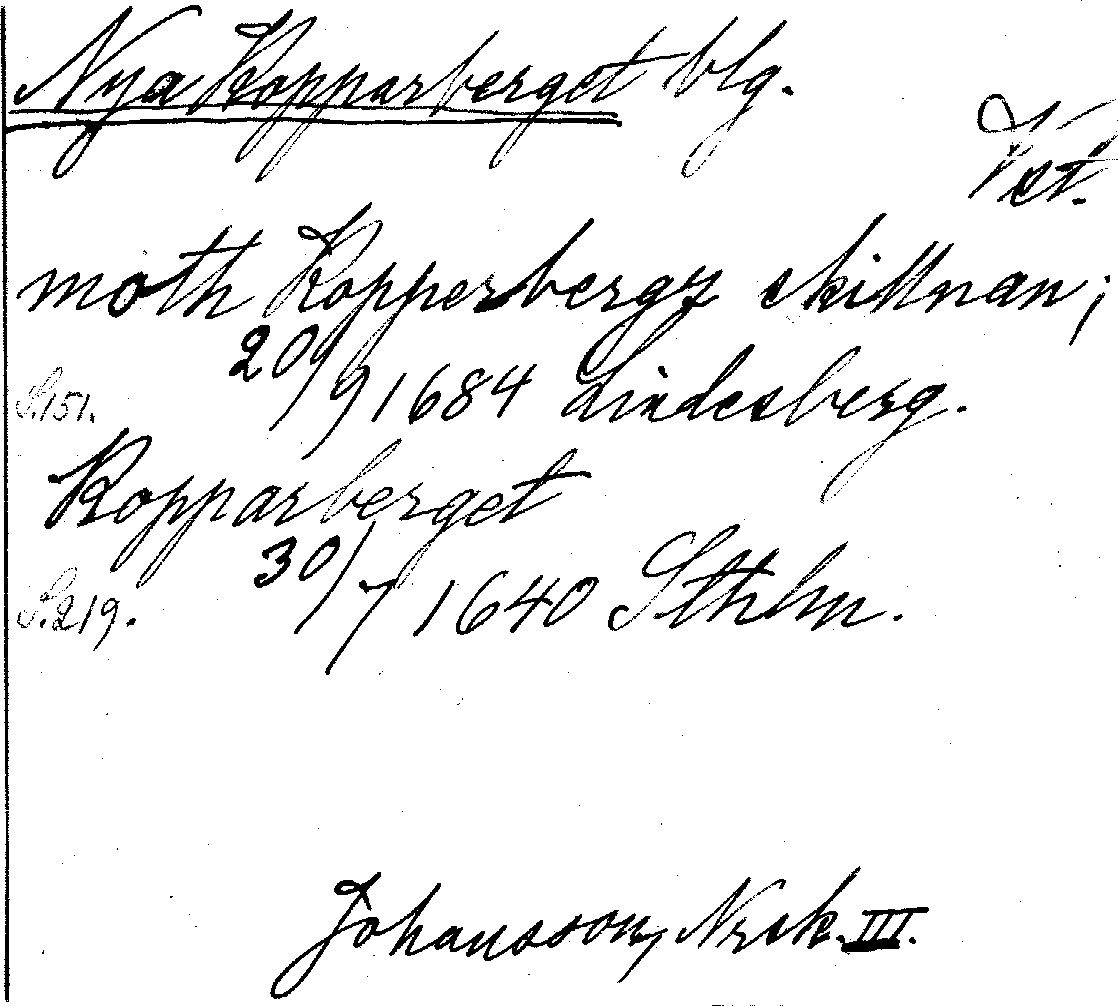 Nya Kopparberget blg.
Vst.
moth Kopperbergz skillnan;
S.151. 20/9 1684 Lindesberg.
Kopparberget
S.219. 30/7 1640 Sthlm.
Johansson, Nzsk. III.